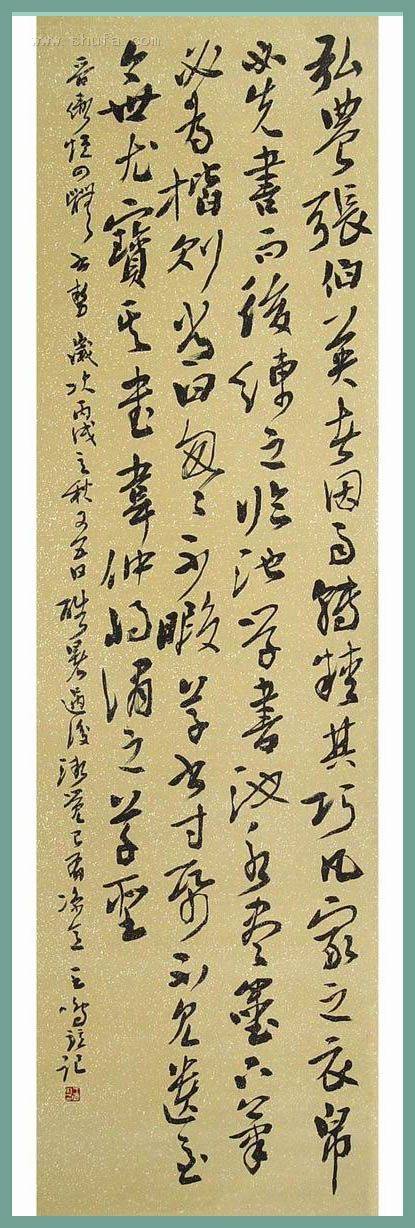 弘農張伯英者因而轉精其巧凡家之衣帛
必先書而後練之臨池學書池水盡墨下筆
必為楷則常曰匆匆不暇草書寸紙不見遺至
今世尤寶其書韋仲將謂之草聖
晉衛恒四體書勢 歲次丙戌之秋 日酷暑過後 已有涼意 記
www.shufa.com